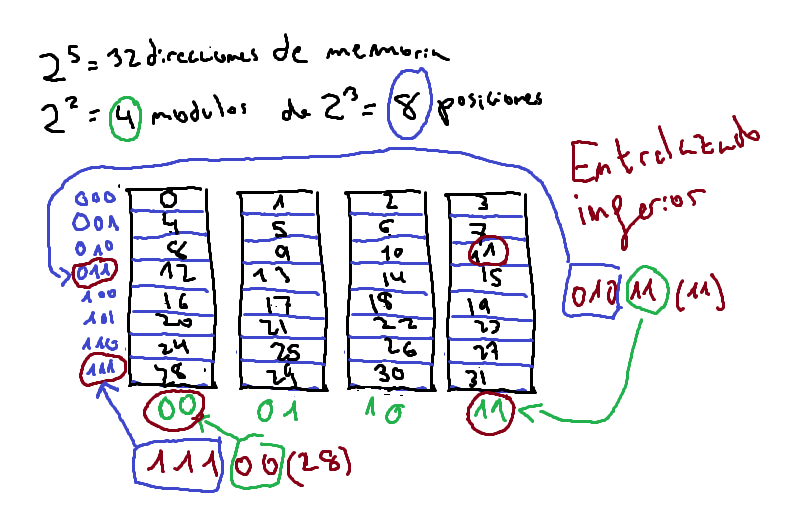 2^5 = 32 direcciones de memoria
2^2 = 4 modulos de 2^3 = 8 posiciones
Entrelazado
inferior
000 0 1 2 3
001 4 5 6 7
010 8 9 10 11
011 12 13 14 15
010 11 (11)
100 16 17 18 19
101 20 21 22 23
110 24 25 26 27
111 28 29 30 31
00 01 10 11
111 00 (28)